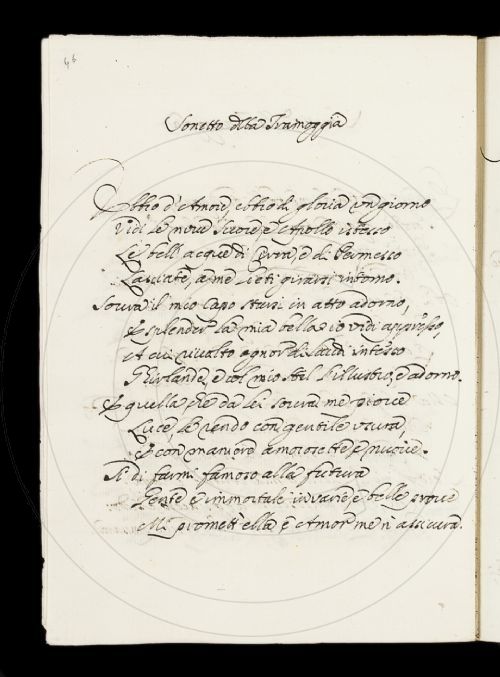 46
Sonetto della Tramoggia
Ebbro d'Amore, ebbro di gloria un giorno
Vidi le nove Suore, e Apollo istesso
Le bell'acque di e di Permesso
Lasciate, a me lieti girarsi intorno.
Sovra il mio Capo starsi in atto adorno,
E splender la mia bella io vidi appresso,
A cui rivolto ognor di lauri intesso
Ghirlande, e col mio stil l'illustro, e adorno.
E quella che da lei sovra me piove
Luce, le rendo con gentile usura,
E con maniere amorosette e nuove.
A di farmi famoso alla futura
Gente e immortale in varie, e belle prove
Mi promett'ella, e Amor me n'assicura.